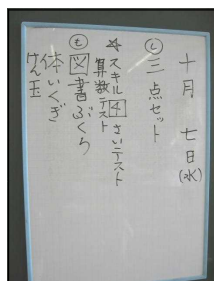 十月 七日(水)
し 三点セット
☆スキル 4 さいテスト
算数テスト
も 図書ぶくろ
体いくぎ
けん玉